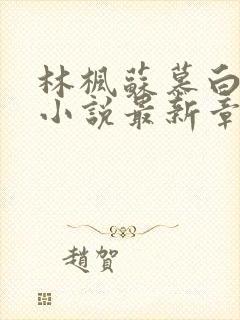 林楓蘇慕白
小說最新章
趙賀